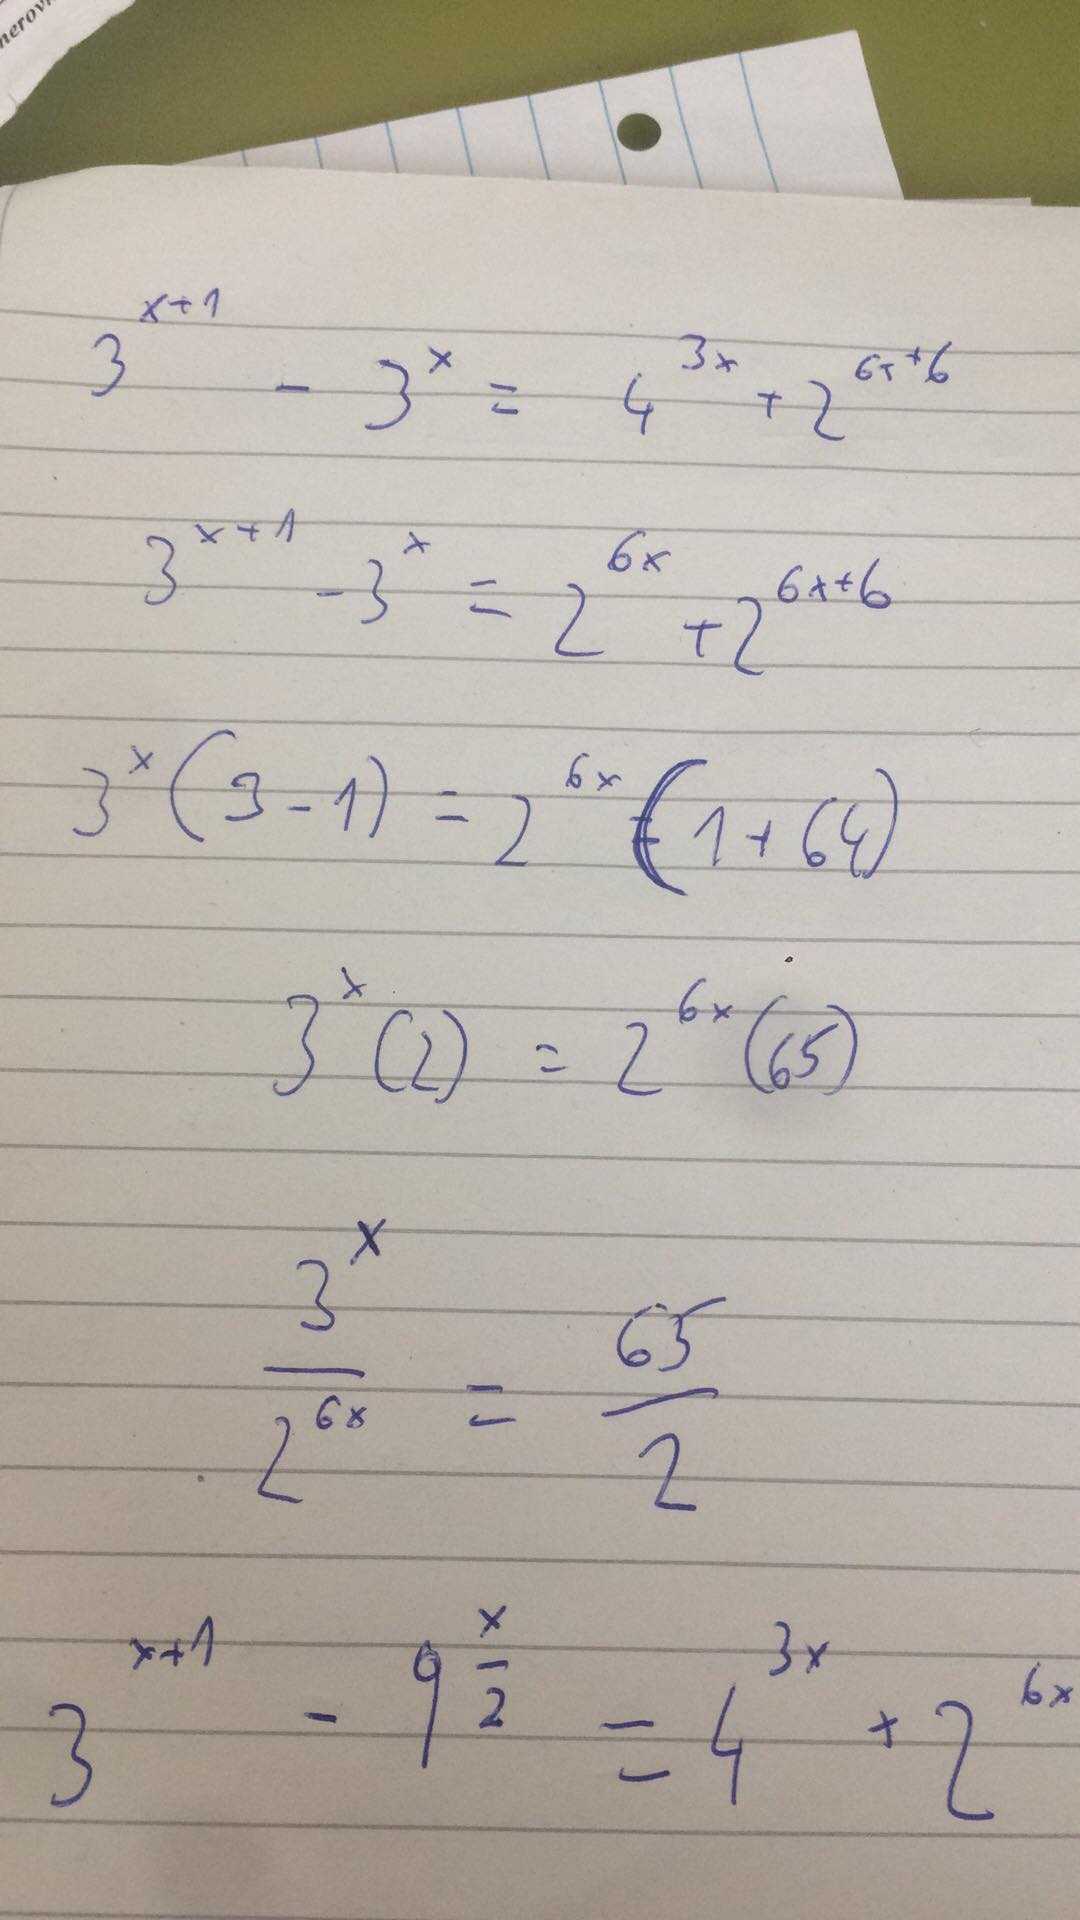 nerov
3^{x+1} - 3^x = 4^{3x} + 2^{6x+6}
3^{x+1} - 3^x = 2^{6x} + 2^{6x+6}
3^x (3 - 1) = 2^{6x} (1 + 64)
3^x (2) = 2^{6x} (65)
\frac{3^x}{2^{6x}} = \frac{65}{2}
3^{x+1} - 9^{\frac{x}{2}} = 4^{3x} + 2^{6x}